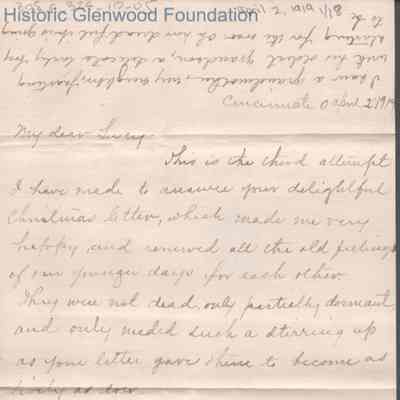 Historic Glenwood Foundation
April 2, 1919 1/18
I saw a grandmother, my neighbor, parting
with her oldest grandson, a delicate boy
starting for the war. Oh how dreadful it is going
to be
Cincinnati O April 2 1919
My dear Lucy
This is the third attempt
I have made to answer your delightful
Christmas letter, which made me very
happy, and renewed all the old feelings
of our younger days for each other
They were not dead, only partially dormant,
and only needed such a stirring up
as your letter gave them to become as
lively as ever